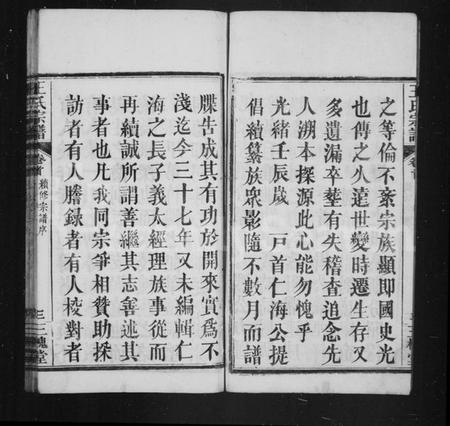 之等倫不紊宗族顯即國史光
也傳之久遠世變時遷生存又
多遺漏卒塟有失稽查追念先
人溯本探源此心能勿愧乎
光緒壬辰歲 戸首仁海公提
倡續纂族眾影隨不數月而譜
王氏宗譜 卷首 續修宗譜序 三 三槐堂
牒告成其有功於開來實為不
淺迄今三十七年又未編輯仁
海之長子義太經理族事從而
再續誠所謂善繼其志善述其
事者也凡我同宗爭相贊助採
訪者有人謄録者有人校對者